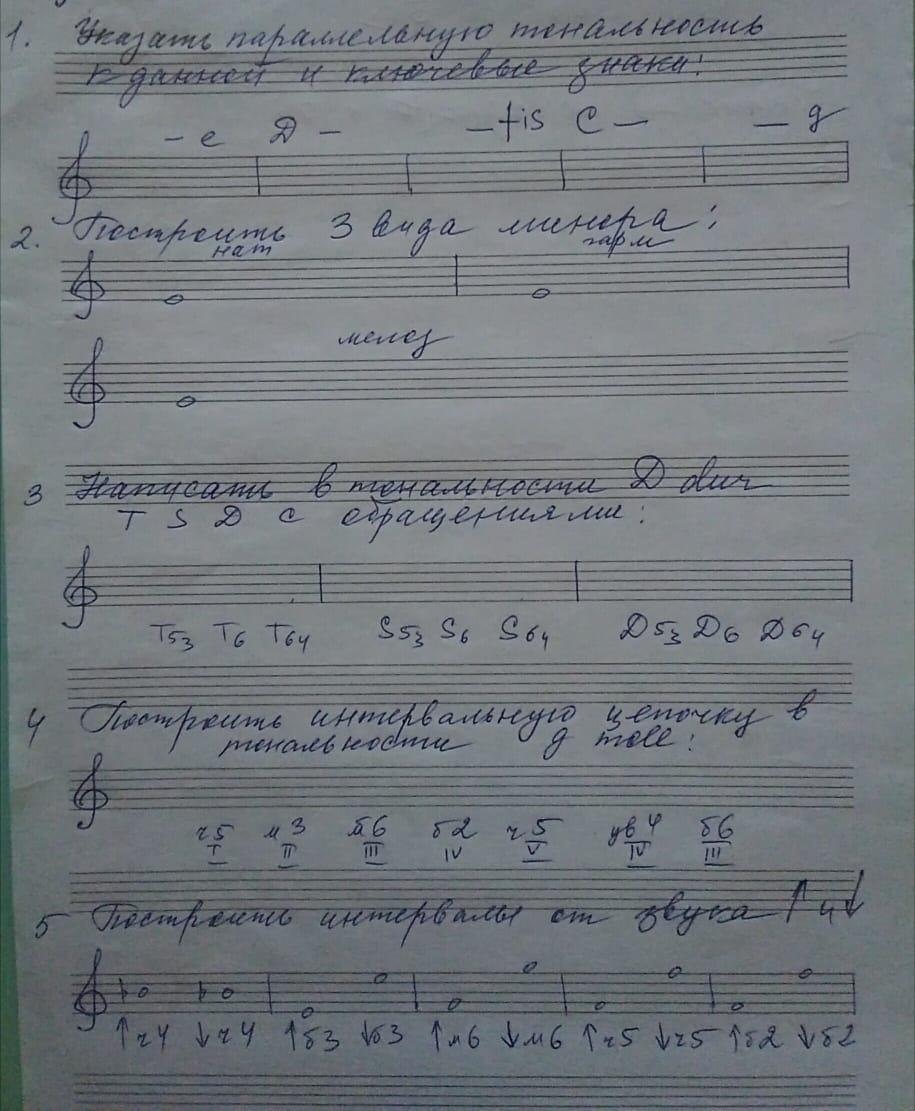 1. Указать параллельную тональность
к данной и ключевые знаки:
– e D – – fis C – – g
2. Построить 3 вида минора:
нат гарм
мелод
3 Написать в тональности D dur
T S D с обращениями:
T53 T6 T64 S53 S6 S64 D53 D6 D64
4 Построить интервальную цепочку в
тональности g moll:
ч5 м3 б6 б2 ч5 ув4 б6
I II III IV V IV III
5 Построить интервалы от звука ↑ и ↓
↑ч4 ↓ч4 ↑б3 ↓б3 ↑м6 ↓м6 ↑ч5 ↓ч5 ↑б2 ↓б2